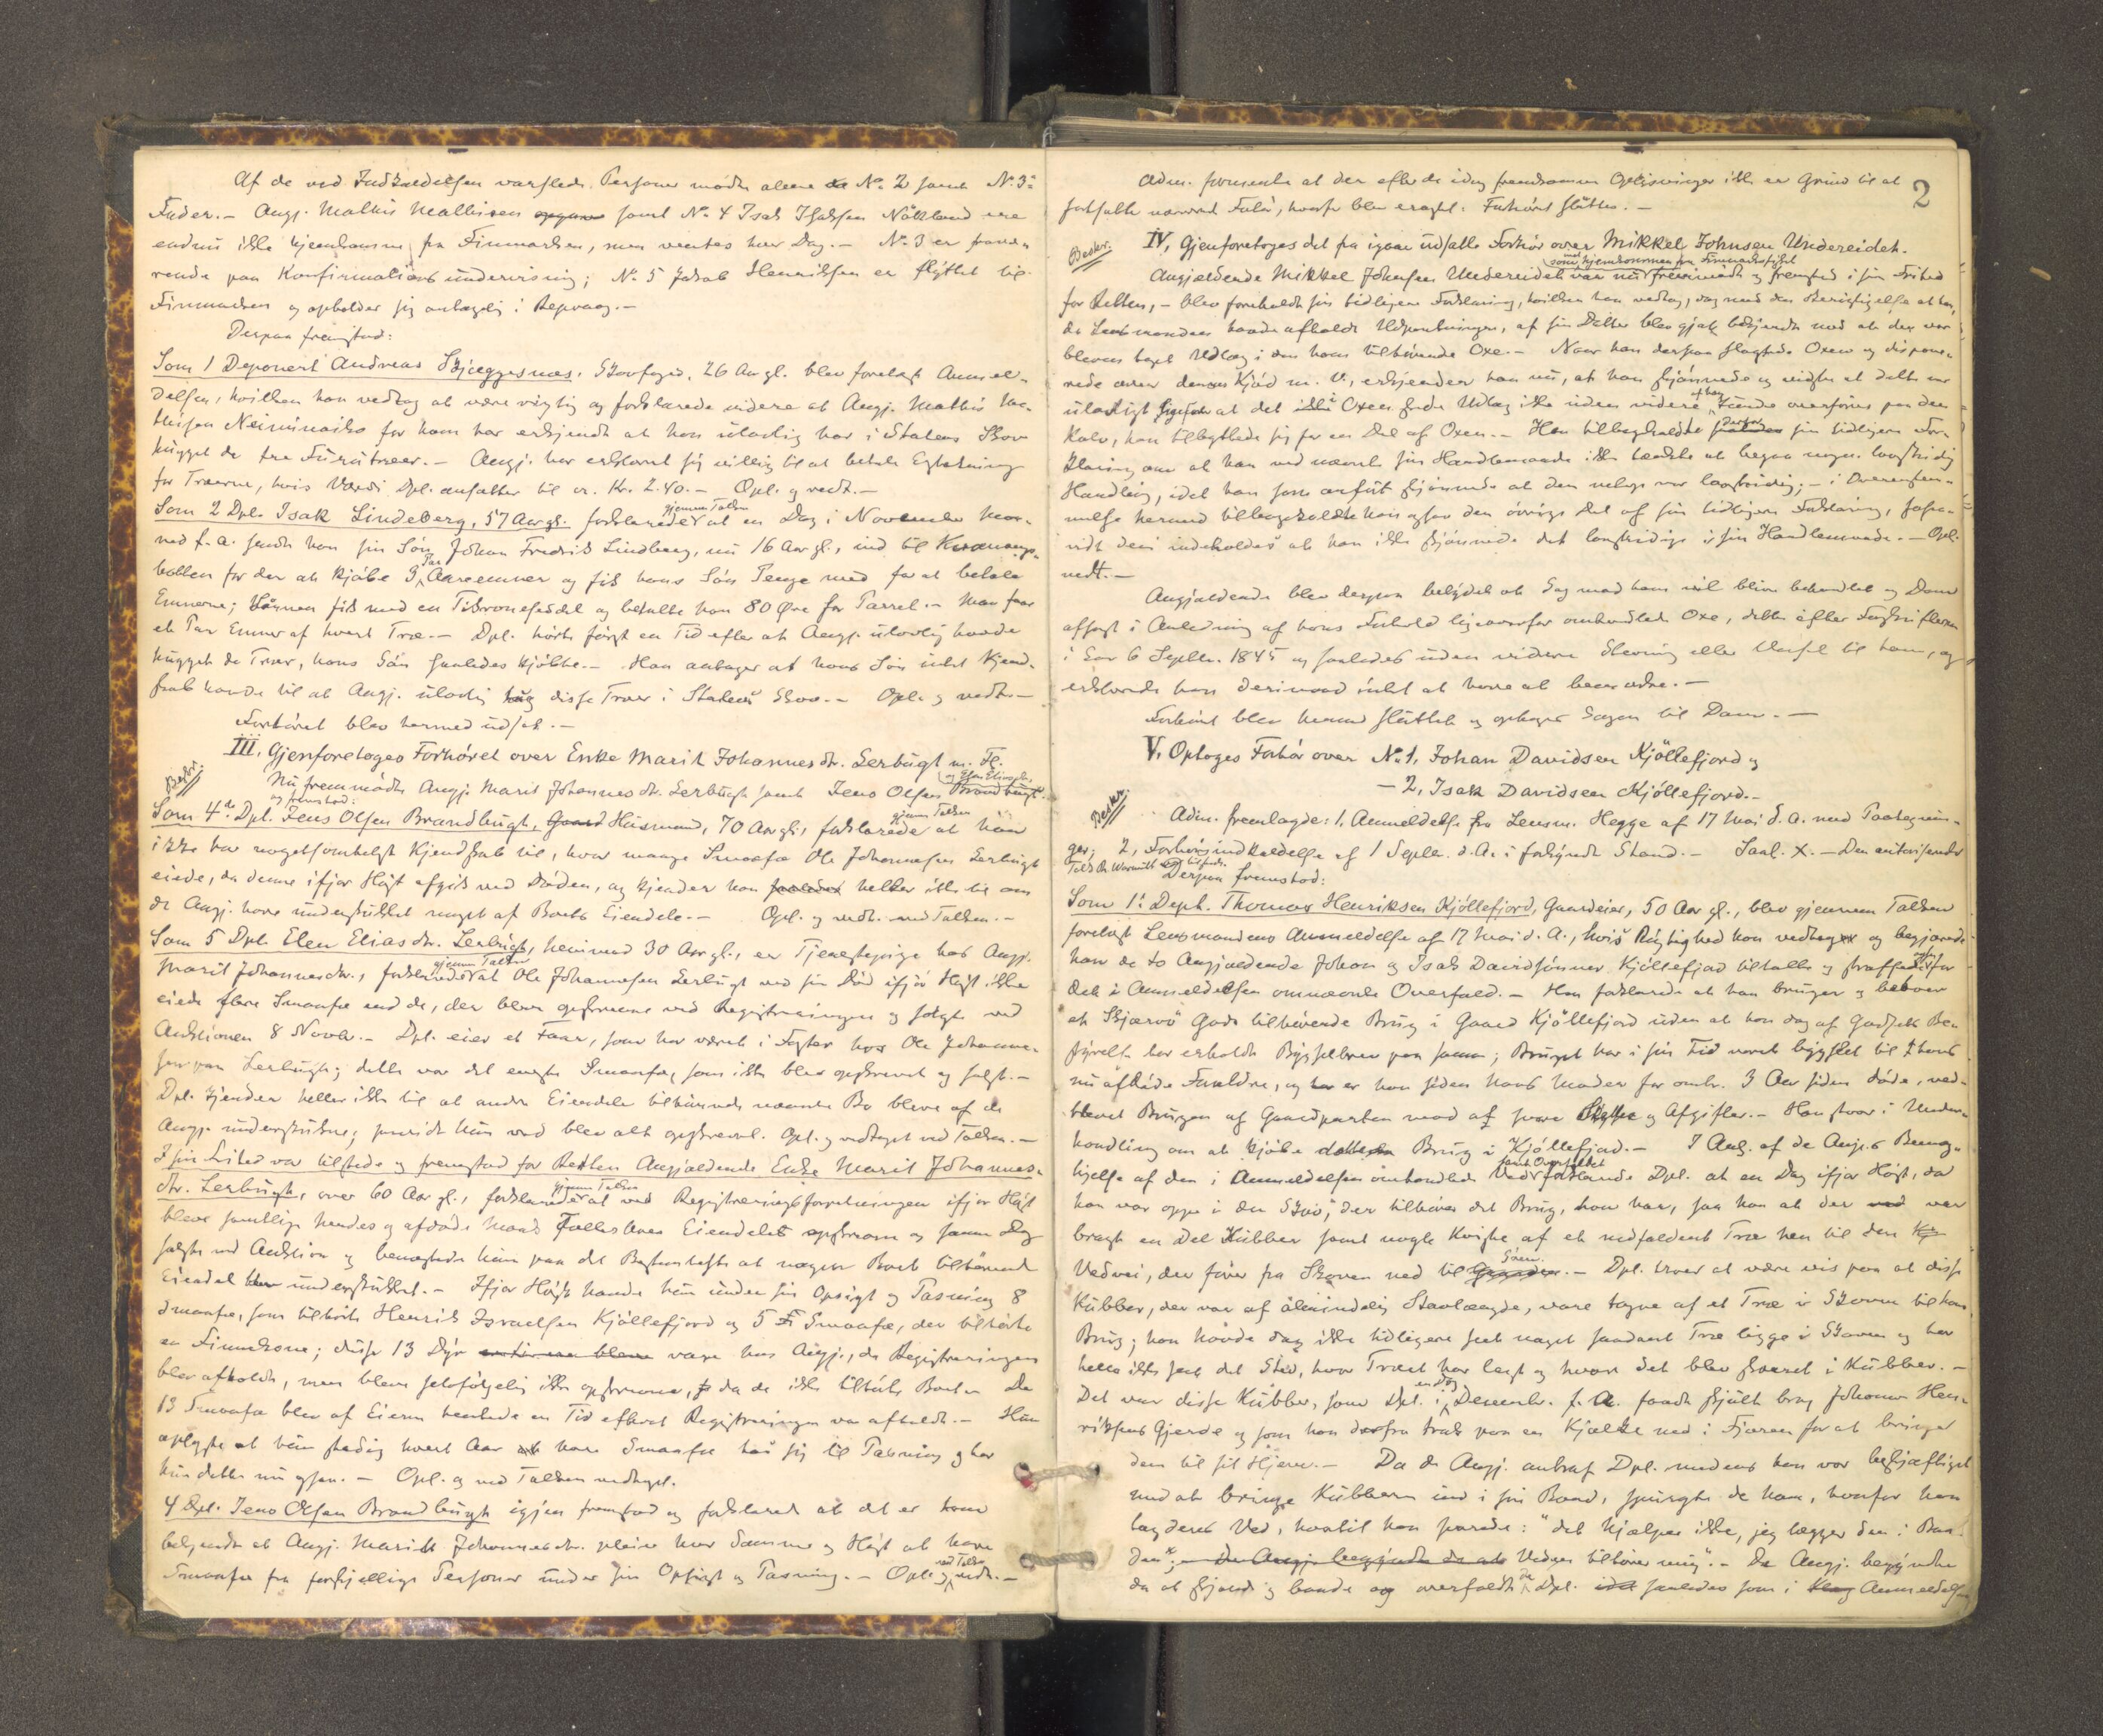 Af de ved Indkaldelsen varslede Personer mødte alene No 2 samt No 3s
Fader. - Angj. Mathis Mathisen samt No 4 Isak Isaksen Nökland ere
endnu ikke hjemkomne fra Finmarken, men ventes hver Dag. - No 3 er fravæ-
rende paa Konfirmationsundervisning; No 5 Jakob Henriksen er flyttet til
Finmarken og opholder sig antagelig i Repvaag. -
Derpaa fremstod:
Som 1 Deponent Andreas Skjæggesnæs, Skovfoged, 26 Aar gl. blev forelagt Anmel-
delsen, hvilken han vedtog at være rigtig og forklarede videre at Angj. Mathis Ma-
thisen for ham har erkjendt at han ulovlig har i Statens Skov
hugget de tre Furutræer. - Angj. har erklæret sig villig til at betale Erstatning
for Træerne, hvis Værdi Dpl. ansætter til cr. Kr. 2.40. - Opl. og vedt. -
Som 2 Dpl. Isak Lindeberg, 57 Aar gl. forklarede gjennem Tolken at en Dag i November Maa-
ned f. A. sendte han sin Søn Johan Fredrik Lindberg, nu 16 Aar gl., ind til Kvænangs-
botten for der at kjøbe 3 Par Aareemner og fik hans Søn Penge med for at betale
Emnerne; Sønnen fik med en Tikroneseddel og betalte han 80 Øre for Parret. - Man faar
et Par Emner af hvert Træ. - Dpl. hørte først en Tid efter at Angj. ulovlig havde
hugget de Træer, hans Søn saaledes kjøbte. - Han antager at hans Søn intet Kjend-
skab havde til at Angj. ulovlig hug disse Træer i Statens Skov. - Opl. og vedt. -
Forhöret blev hermed udsat. -
III. Gjenforetoges Forhöret over Enke Marit Johannesdtr. Lerbugt m. Fl.
Beskr.
Nu fremmødte Angj. Marit Johannesdtr. Lerbugt samt Jens Olsen Brandbugt
og fremstod:
Som 4de Dpl. Jens Olsen Brandbugt, Gaard Husmand, 70 Aar gl., forklarede gjennem Tolken at han
ikke har nogetsomhelst Kjendskab til, hvor mange Smaafæ Ole Johannesen Lerbugt
eiede, da denne ifjor Høst afgik ved Døden, og kjender han saaledes heller ikke til om
de Angj. have understukket noget af Boets Eiendele. - Opl. og vedt. ved Tolken. -
Som 5 Dpl. Elen Eliasdtr. Lerbugt, henimod 30 Aar gl., er Tjenestepige hos Angj.
Marit Johannesdtr., forklarede gjennem Tolken at Ole Johannesen Lerbugt ved sin Død ifjor Høst ikke
eiede flere Smaafæ end de, der bleve opskrevne ved Registreringen og solgte ved
Auktionen 8 Novbr. - Dpl. eier et Faar, som har været i Foster hos Ole Johanne-
sen paa Lerbugt; dette var det eneste Smaafæ, som ikke blev opskrevet og solgt. -
Dpl. kjender heller ikke til at andre Eiendele tilhørende nævnte Bo bleve af de
Angj. understukne; saavidt hun ved blev alt opskrevet. Opl. og vedtaget ved Tolken. -
I sin Frihed var tilstede og fremstod for Retten Angjældende Enke Marit Johannes-
dtr. Lerbugt, over 60 Aar gl., forklarede gjennem Tolken at ved Registreringsforretningen ifjor Høst
bleve samtlige hendes og afdøde Mands Fælles Eiendele opskrevne og samme
solgte ved Auktion og benægtede hun paa det Bestemteste at nogen Boet tilhørende
Eiendel blev understukket. - Ifjor Høst havde hun under sin Opsigt og Pasning 8
Smaafæ, som tilhørte Henrik Israelsen Kjöllefjord og 5 Smaafæ, der tilhørte
en Finnekone; disse 13 Dyr vare hos Angj., da Registreringen
blev afholdt, men bleve selvfølgelig ikke opskrevne, da de ikke tilhørte Boet. - De
13 Smaafæ blev af Eierne hentede en Tid efterat Registreringen var afholdt. - Hun
oplyste at hun stadig hvert Aar har Smaafæ hos sig til Pasning og har
hun dette nu ogsaa. - Opl. og ved Tolken vedtaget.
4 Dpl. Jens Olsen Brandbugt igjen fremstod og forklarede at det er ham
bekjendt at Angj. Marit Johannesdtr. pleier hver Sommer og Høst at have
Smaafæ fra forskjellige Personer under sin Opsigt og Pasning. - Opl. og ved Tolken vedt. -
2
Adm. formente at der efter de idag fremkomne Oplysninger ikke er Grund til at
fortsætte nærværende Forhør, hvorfor blev eragtet: Forhöret sluttes. -
Beskr.
IV. Gjenforetoges det fra igaar udsatte Forhör over Mikkel Johnsen Undereidet.
Angjældende Mikkel Johnsen Undereidet som hjemkommen fra Finmarksfisket var nu fremmødt og fremstod i sin Frihed
for Retten, - blev foreholdt sin tidligere Forklaring, hvilken han vedtog, dog med den Berigtigelse at han,
da Lensmanden havde afholdt Udpantningen, af sin Datter blev gjort bekjendt med at der var
bleven taget Udlæg i den ham tilhørende Oxe. - Naar han derpaa slagtede Oxen og dispone-
rede over dennes Kjød m. V., erkjender han nu, at han skjønnede og vidste at dette var
ulovligt at det i Oxen skede Udlæg ikke uden videre af ham kunde overføres paa den
Kalv, han tilbyttede sig for en Del af Oxen. - Han tilbagekaldte derfor sin tidligere For-
klaring om at han ved nævnte sin Handlemaade ikke tænkte at begaa nogen lovstridig
Handling, idet han som anført skjønnede at den netop var lovstridig; - i Overensstem-
melse hermed tilbagekaldte han ogsaa den øvrige Del af sin tidligere Forklaring, forsaa-
vidt deri indeholdes at han ikke skjønnede det lovstridige i sin Handlemaade. - Opl.
vedt. -
Angjældende blev derpaa betydet at Sag mod ham vil blive behandlet og Dom
afsagt i Anledning af hans Forhold ligeoverfor omhandlede Oxe, dette efter Forskrifterne
i Lov 6 Septbr. 1845 og saaledes uden videre Stevning eller Varsel til ham, og
erklærede han derimod intet at have at bemærke. -
Forhöret blev hermed sluttet og optages Sagen til Dom. -
V. Optoges Forhör over No 1, Johan Davidsen Kjöllefjord og
- 2, Isak Davidsen Kjöllefjord. -
Beskr.
Adm. fremlagde: 1. Anmeldelse fra Lensm. Hegge af 17 Mai d. A. med Paategnin-
ger; 2, Forhörsindkaldelse af 1 Septbr. d. A. i forkyndt Stand. - Saal. X. - Den autoriserede
Tolk tilstede.
Derpaa fremstod:
Som 1ste Depnt. Thomas Henriksen Kjöllefjord, Gaardeier, 50 Aar gl., blev gjennem Tolken
forelagt Lensmandens Anmeldelse af 17 Mai d. A., hvis Rigtighed han vedtog og begjærede
han de to Angjældende Johan og Isak Davidsønner Kjöllefjord tiltalte og straffede for
det i Anmeldelsen omnævnte Overfald. - Han forklarede at han bruger og beboer
et Skjærvö Gods tilhørende Brug i Gaard Kjöllefjord uden at han dog af Godsets Be-
styrelse har erholdt Bygselbrev paa samme; Bruget har i sin Tid været bygslet til hans
nu afdøde Forældre, og er han siden hans Moder for omtr. 3 Aar siden døde, ved-
blevet Brugen af Gaardparten mod at svare Skatter og Afgifter. - Han staar i Under-
handling om at kjøbe dette Brug i Kjöllefjord. - I Anl. af de Angj.s Bemæg-
tigelse af den i Anmeldelsen omhandlede Ved samt Overfaldet forklarede Dpl. at en Dag ifjor Høst, da
han var oppe i den Skov, der tilhører det Brug, han har, saa han at der var
bragt en Del Kubber samt nogle Kviste af et nedfaldent Træ hen til den
Vedvei, der fører fra Skoven ned til Søen. - Dpl. tror at være vis paa at disse
Kubber, der var af almindelig Stavlængde, vare tagne af et Træ i Skoven til hans
Brug; han havde dog ikke tidligere seet noget saadant Træ ligge i Skoven og har
heller ikke seet det Sted, hvor Træet har lagt og hvor det blev skaaret i Kubber. -
Det var disse Kubber, som Dpl. en Dag i Decembr. f. A. fandt skjult bag Johannes Hen-
riksens Gjerde og som han derfra trak paa en Kjælke ned i Fjæren for at bringe
dem til sit Hjem. - Da de Angj. antraf Dpl. medens han var beskjæftiget
med at bringe Kubberne ind i sin Baad, spurgte de ham, hvorfor han
tog deres Ved, hvortil han svarede: "det hjælper ikke, jeg lægger den i Baa-
den; - de Angj. begyndte da at Veden tilhører mig". - De Angj. begyndte
da at skjende og bande og overfaldt de Dpl. saaledes som i Anmeldelsen